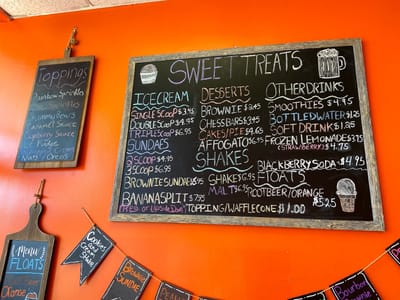 Toppings
Rainbow Sprinkles
Sprinkles
Marshmallows
Caramel Sauce
Cherry Sauce
Fudge
Nuts Oreos
SWEET TREATS
ICE CREAM
SINGLE SCOOP $3.45
DOUBLE SCOOP $4.95
TRIPLE SCOOP $6.95
SUNDAES
2 SCOOP $4.95
3 SCOOP $6.95
BROWNIE SUNDAE $5.95
BANANA SPLIT $7.95
DESSERTS
BROWNIE $2.45
CHESS BARS $2.45
CAKES/PIES $4.65
AFFOGATO $4.95
SHAKES
SHAKES $6.95
MALTS $6.95
TOPPING/WAFFLE CONE $1.00
OTHER DRINKS
SMOOTHIES $4.95
BOTTLED WATER
SOFT DRINKS $1.85
FROZEN LEMONADE $3.75
(STRAWBERRY) $4.75
BLACKBERRY SODA $4.95
FLOATS
ROOTBEER/ORANGE
$5.25
Menu
FLOATS
Orange
Cookies
Cream
Shake
BROWNIE
SUNDAE
Bourbon